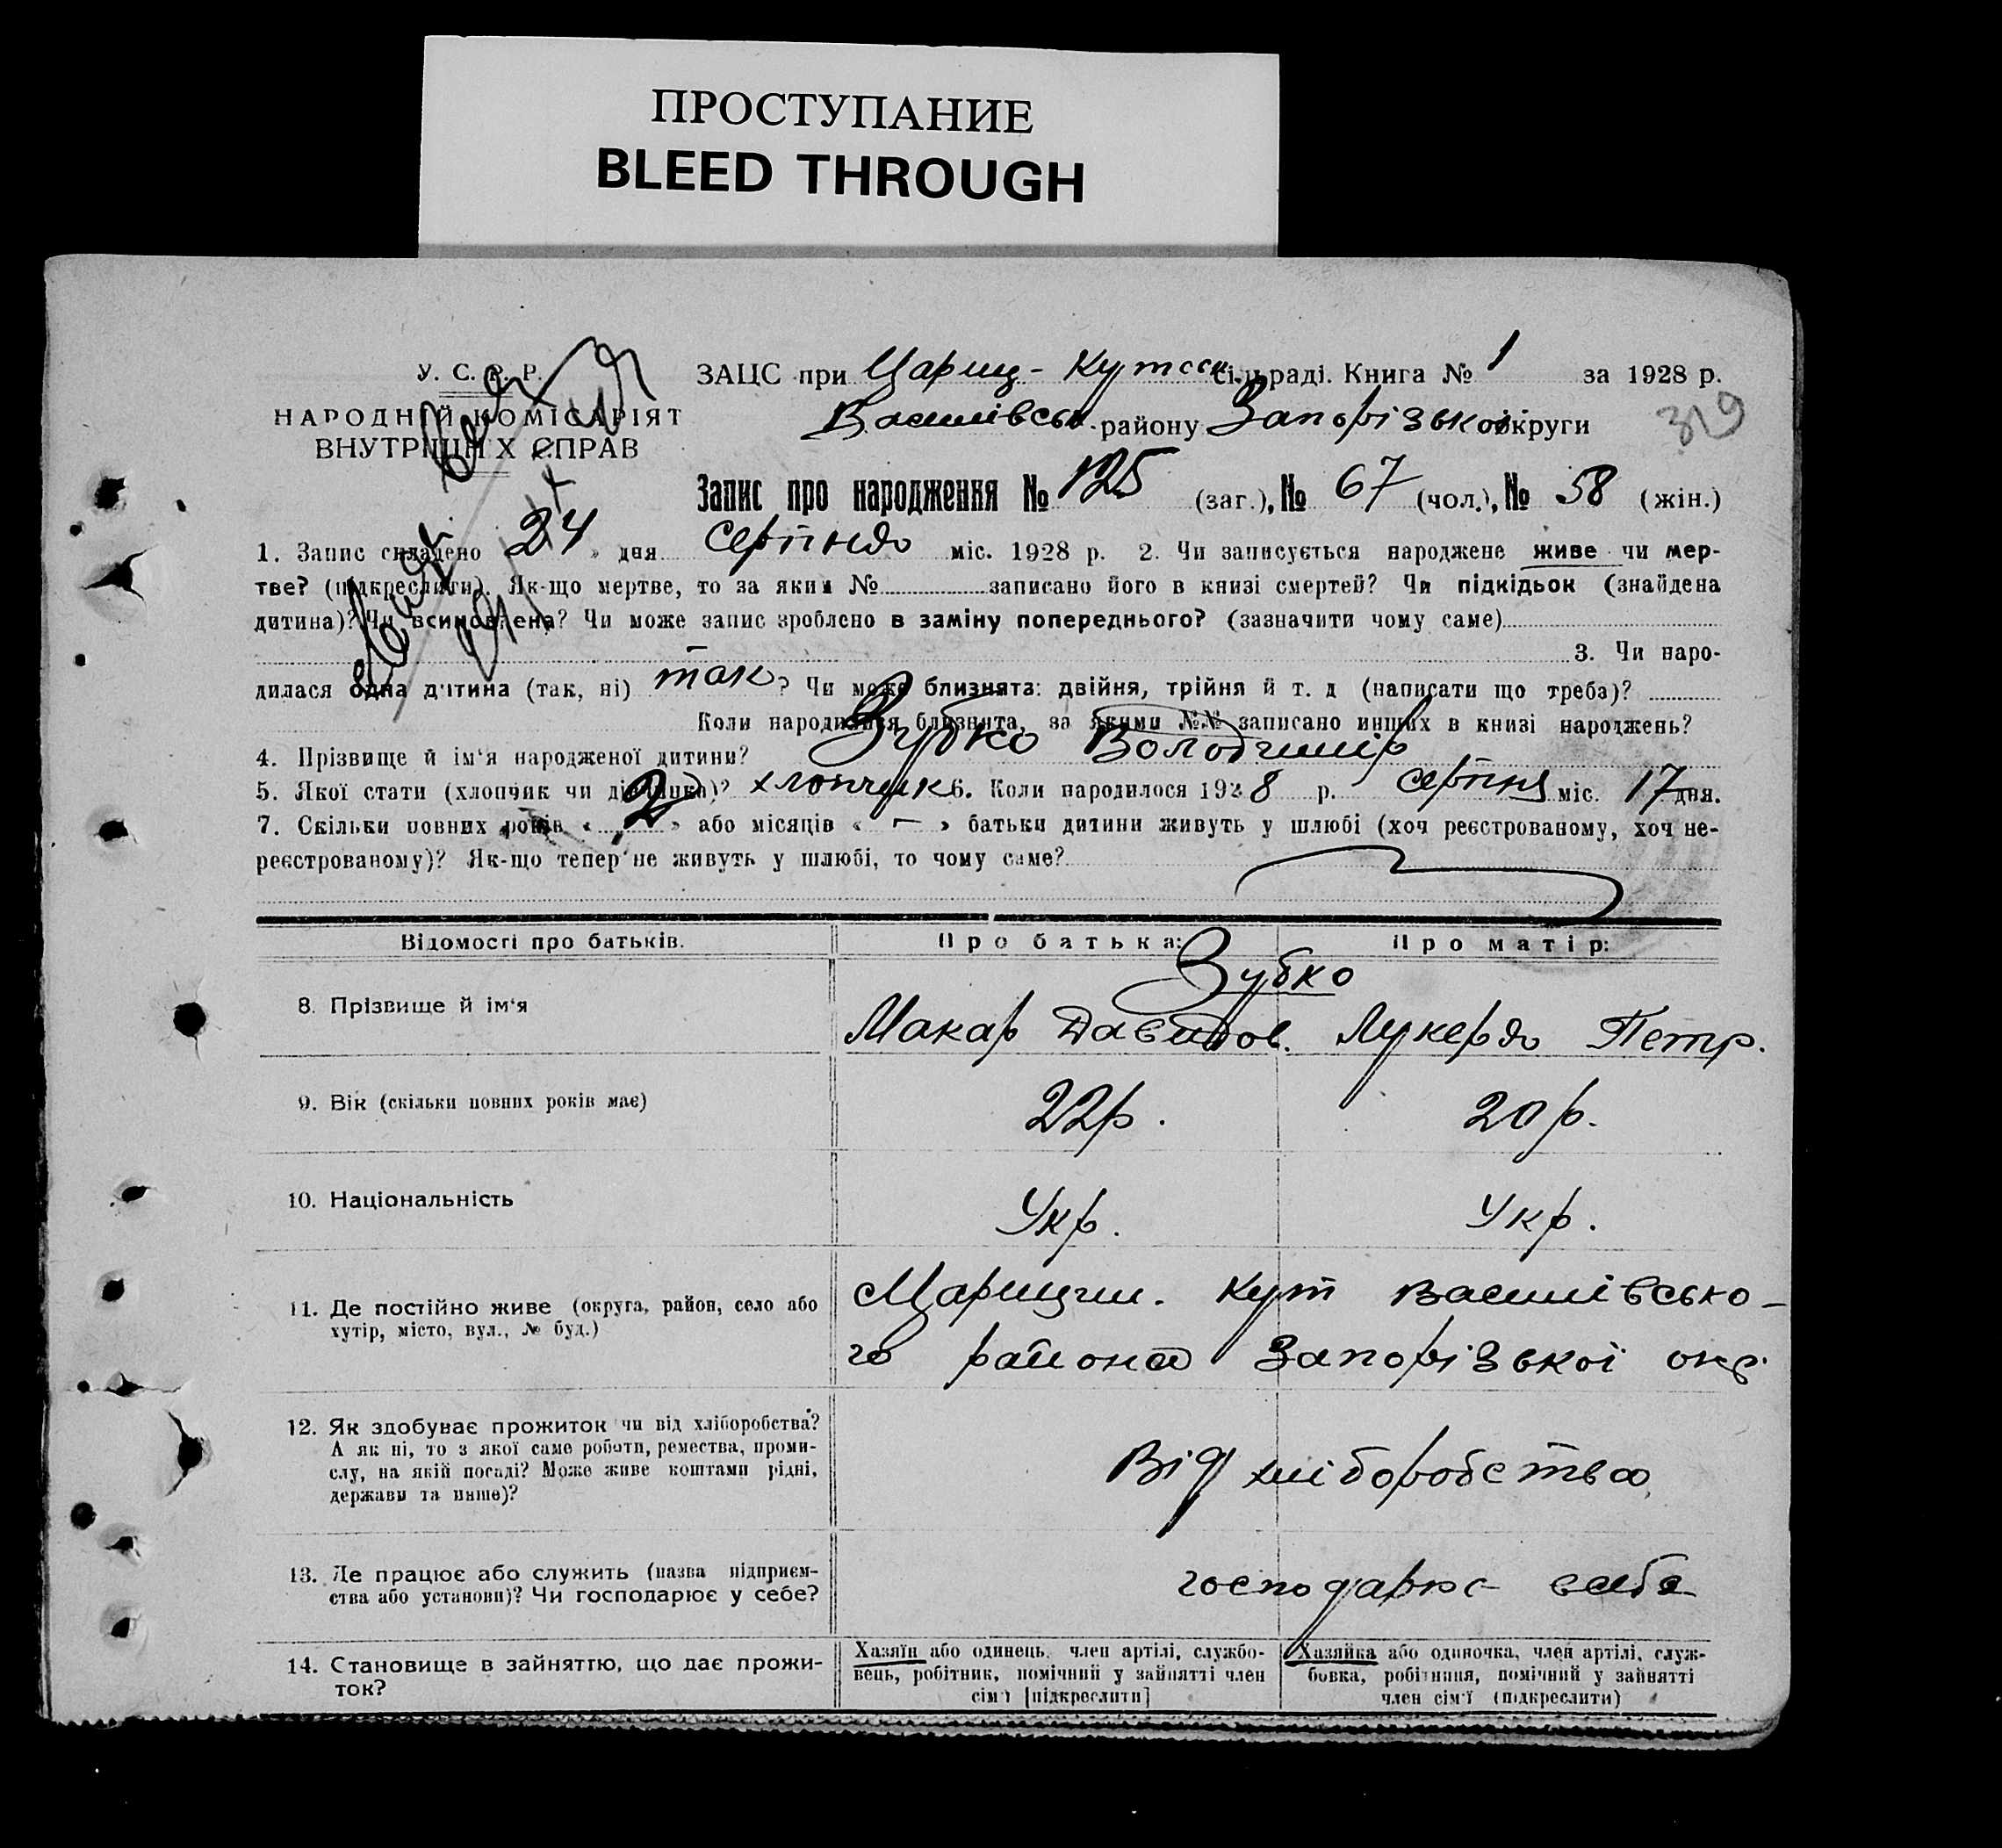 ПРОСТУПАНИЕ
BLEED THROUGH
У. С. Р. Р.
НАРОДНІЙ КОМІСАРІЯТ
ВНУТРІШНІХ СПРАВ
ЗАЦС при Цариц-Кутськ. сільраді. Книга № 1 за 1928 р.
Василівськ. району Запорізької округи
319
Запис про народження № 125 (заг.), № 67 (чол.), № 58 (жін.)
1. Запис складено 24 » дня серпня міс. 1928 р. 2. Чи записується народжене живе чи мер-
тве? (підкреслити). Як-що мертве, то за яким № записано його в книзі смертей? Чи підкідьок (знайдена
дитина)? Чи всиновлена? Чи може запис зроблено в заміну попереднього? (зазначити чому саме)
3. Чи наро-
дилася одна дитина (так, ні) так? Чи може близнята: двійня, трійня й т. д (написати що треба)?
Коли народилися близнята, за якими №№ записано инших в книзі народжень?
4. Прізвище й ім‘я народженої дитини? Зубко Володимир
5. Якої стати (хлопчик чи дівчинка)? хлопчик 6. Коли народилося 1928 р. серпня міс. 17 дня.
7. Скільки повних років « 2 » або місяців « – » батьки дитини живуть у шлюбі (хоч реєстрованому, хоч не-
реєстрованому)? Як-що тепер не живуть у шлюбі, то чому саме?
Відомості про батьків. Про батька: Про матір:
Зубко
8. Прізвище й ім‘я Макар Давидов. Лукерья Петр.
9. Вік (скільки повних років має) 22 р. 20 р.
10. Національність Укр. Укр.
11. Де постійно живе (округа, район, село або
хутір, місто, вул., № буд.)
Царицин. Кут Василівсько-
го района Запорізької окр.
12. Як здобуває прожиток чи від хліборобства?
А як ні, то з якої саме роботи, ремества, проми-
слу, на якій посаді? Може живе коштами рідні,
держави та инше)?
Від хліборобства
13. Де працює або служить (назва підприєм-
ства або установи)? Чи господарює у себе?
господарює
14. Становище в зайняттю, що дає прожи-
ток?
Хазяїн або одинець, член артілі, службо-
вець, робітник, помічний у зайнятті член
сім‘ї [підкреслити]
Хазяйка або одиночка, член артілі, служ-
бовка, робітниця, помічний у зайнятті
член сім‘ї (підкреслити)